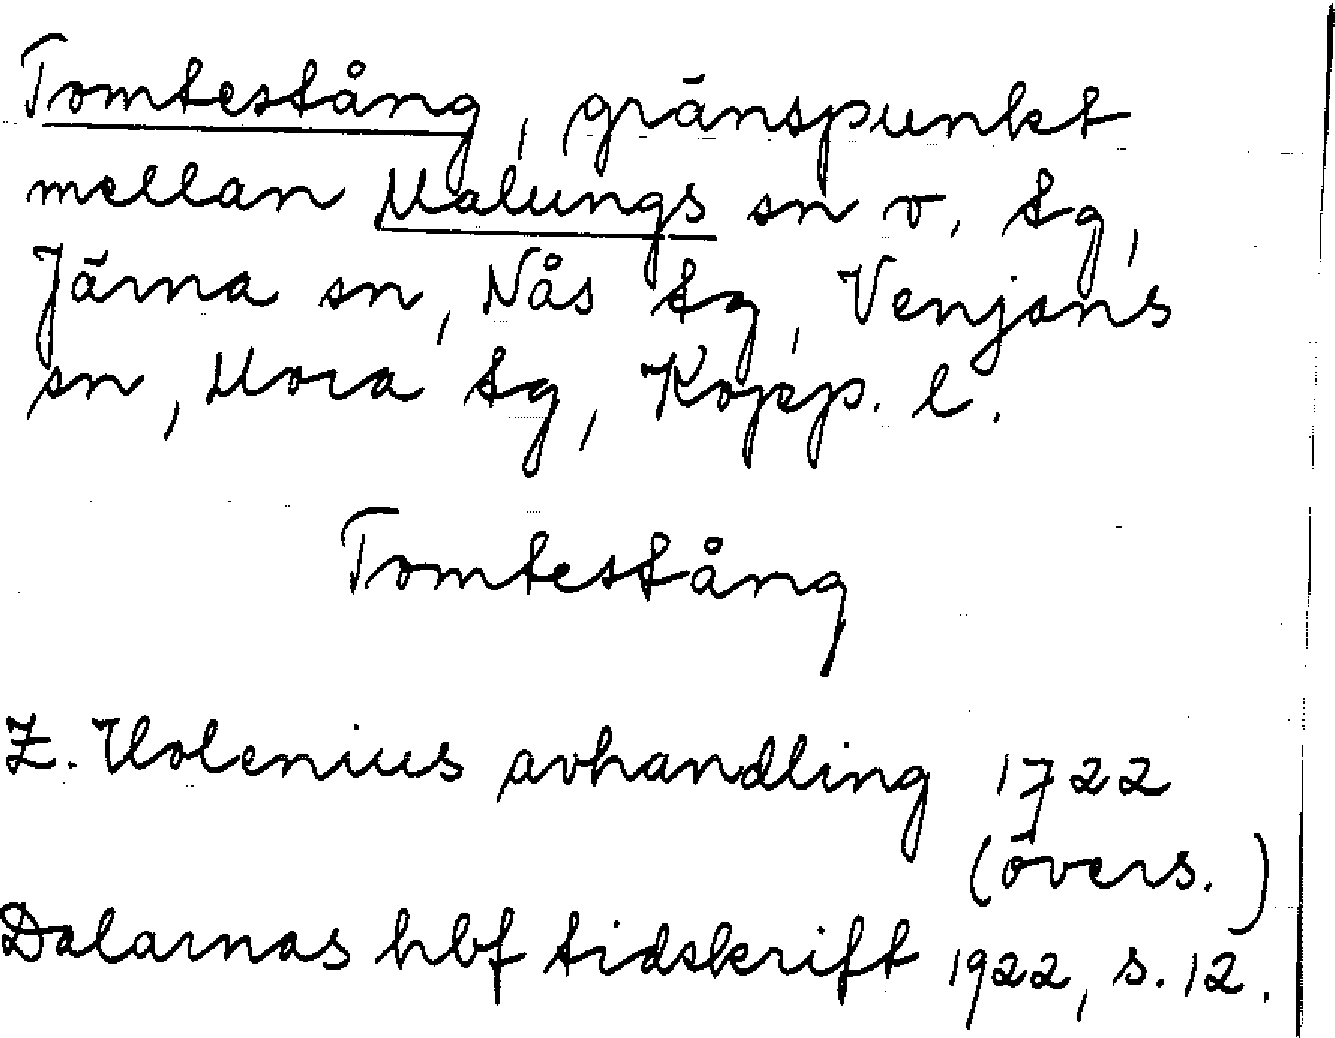 Tomtestång, gränspunkt
mellan Malungs sn o. tg,
Järna sn, Nås tg, Venjans
sn, Mora tg, Kopp. l.
Tomtestång
Z. Holenius avhandling 1722
(övers.)
Dalarnas hbf tidskrift 1922, s. 12.